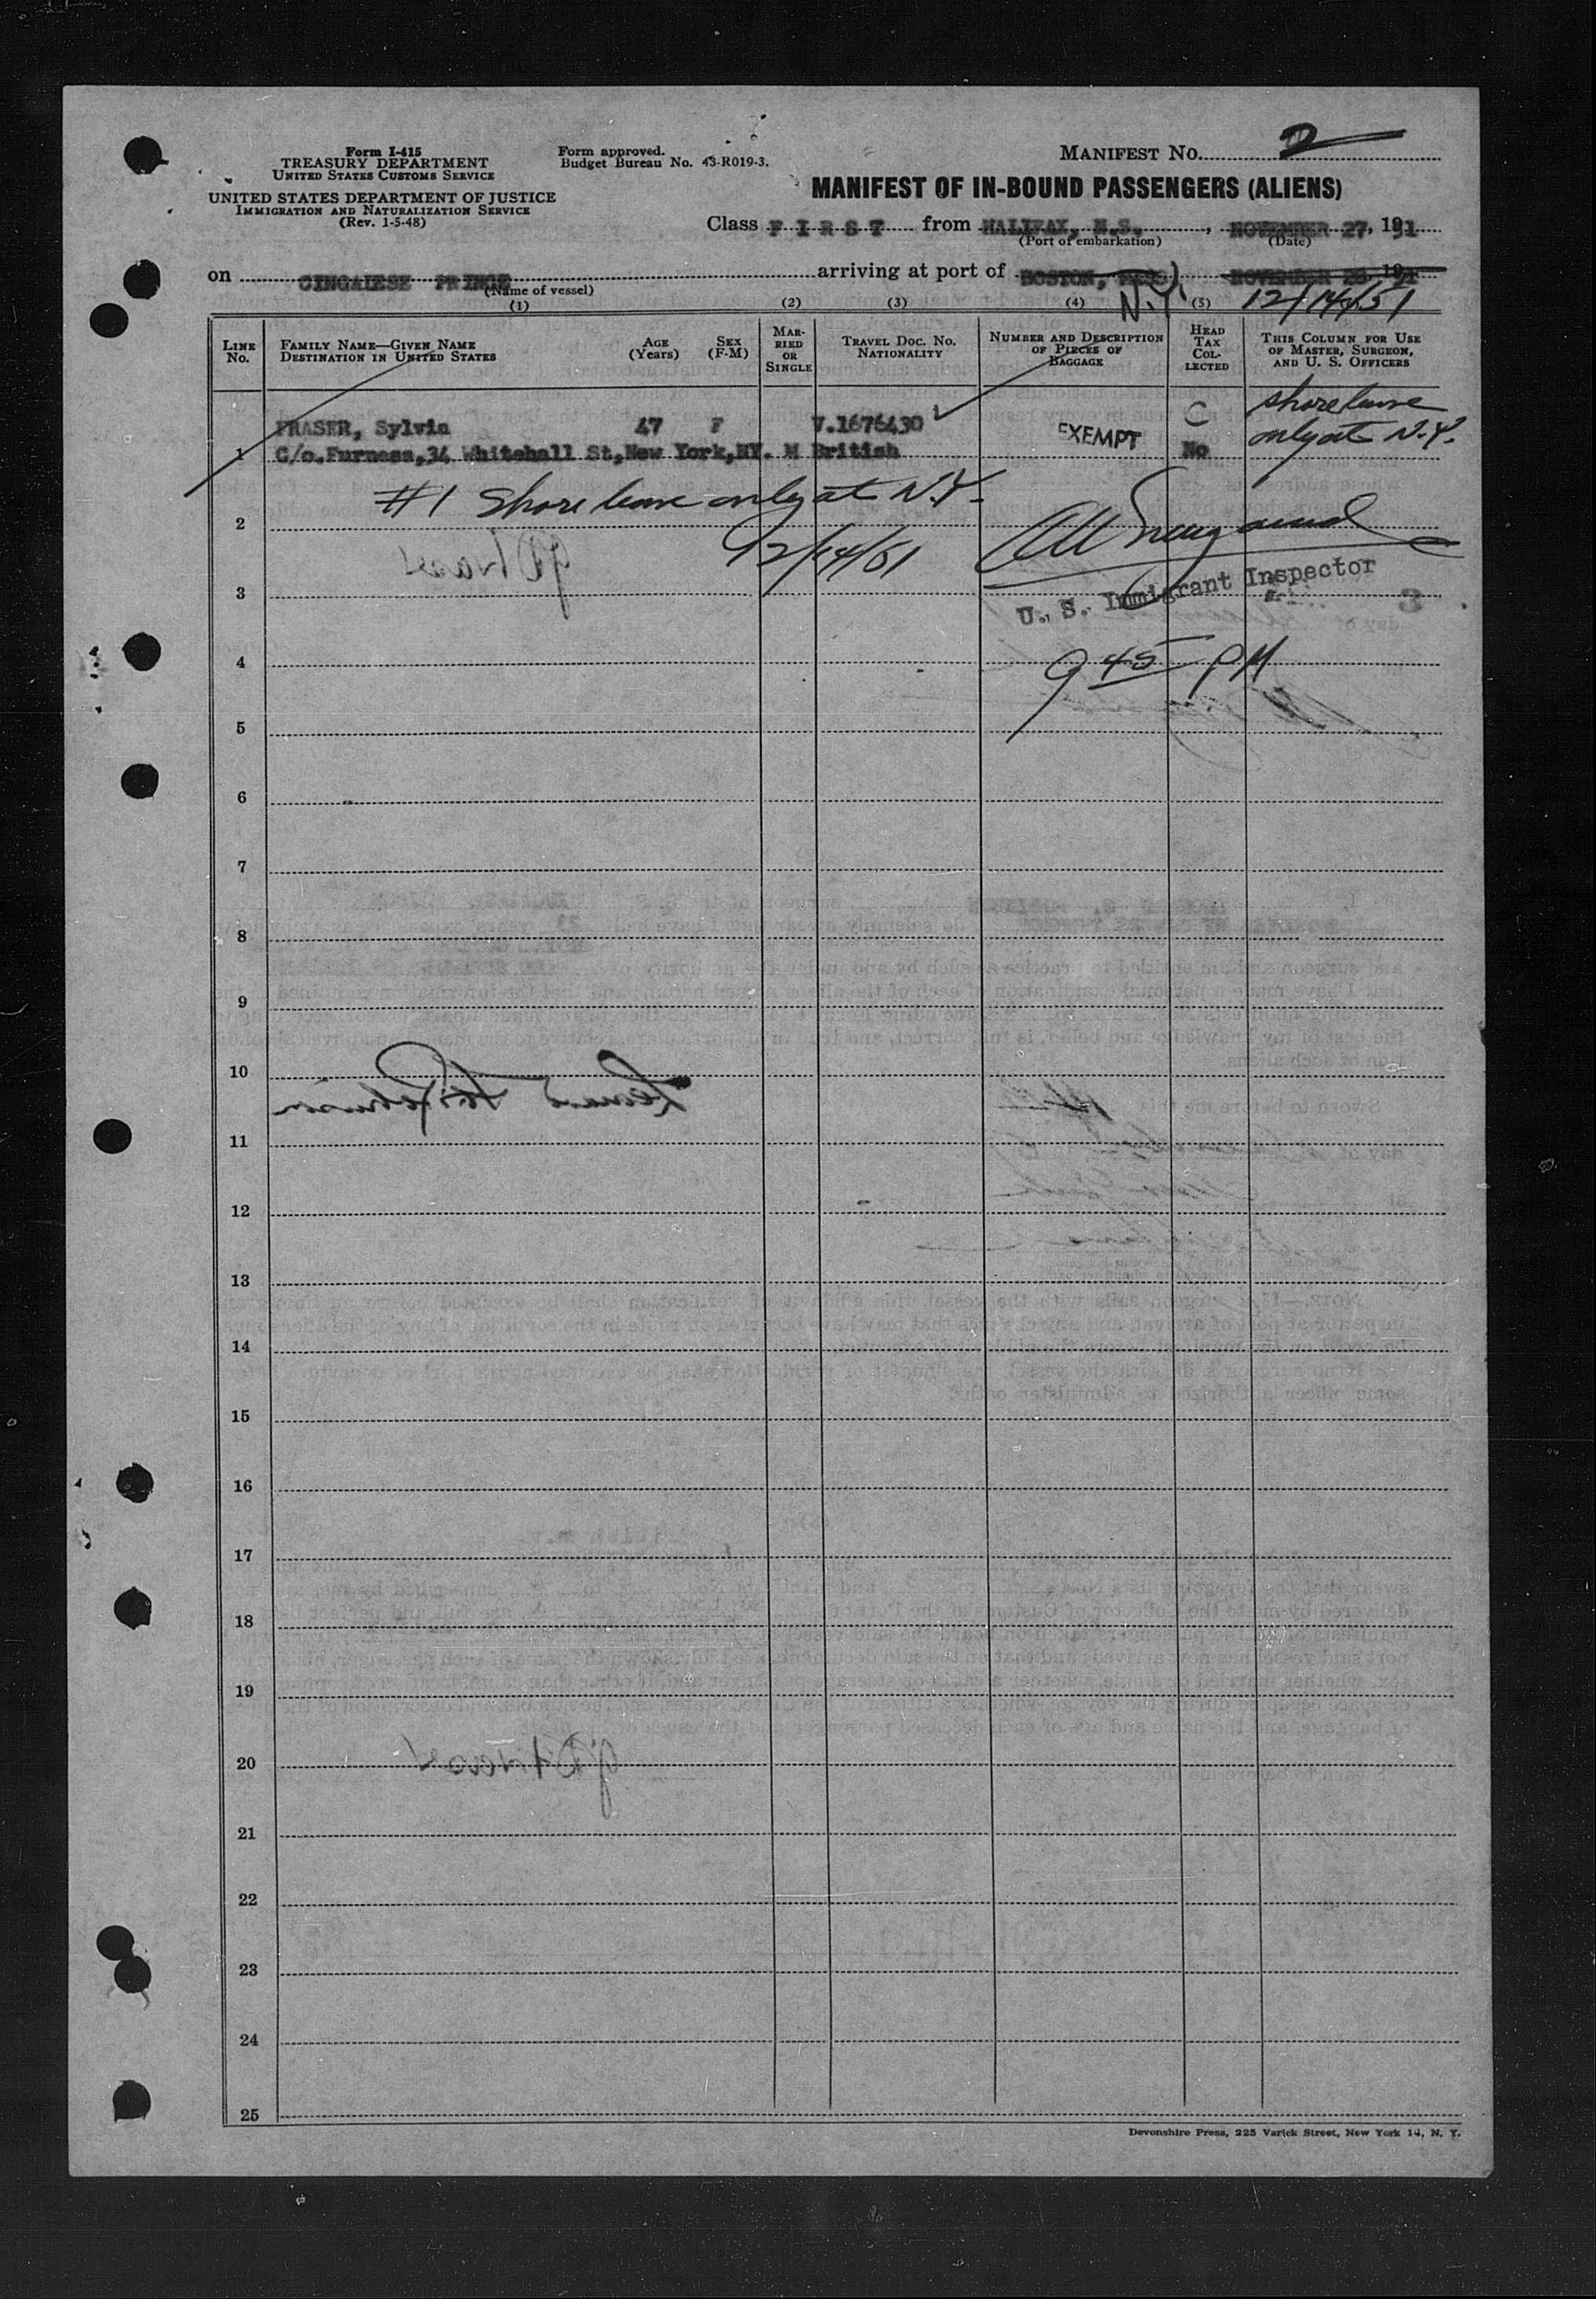 Form I-415
TREASURY DEPARTMENT
UNITED STATES CUSTOMS SERVICE
UNITED STATES DEPARTMENT OF JUSTICE
IMMIGRATION AND NATURALIZATION SERVICE
(Rev. 1-5-48)
Form approved.
Budget Bureau No. 43-R019-3.
MANIFEST NO. 2
MANIFEST OF IN-BOUND PASSENGERS (ALIENS)
Class FIRST from HALIFAX, N.S., NOVEMBER 27, 1951
(Port of embarkation) (Date)
on CINGALESE PRINCE arriving at port of BOSTON, MASS NOVEMBER 28 1951
(Name of vessel) N.Y. 12/14/51
(1) (2) (3) (4) (5)
LINE No.
FAMILY NAME—GIVEN NAME
DESTINATION IN UNITED STATES
AGE (Years)
SEX (F-M)
MARRIED OR SINGLE
TRAVEL DOC. NO. NATIONALITY
NUMBER AND DESCRIPTION OF PIECES OF BAGGAGE
HEAD TAX COLLECTED
THIS COLUMN FOR USE OF MASTER, SURGEON, AND U. S. OFFICERS
FRASER, Sylvia 47 F V.1676430 EXEMPT C shore leave
1 C/o.Furness,34 Whitehall St,New York,NY. M British No only at N.Y.
#1 Shore leave only at N.Y.
2
12/14/51
3
U. S. Immigrant Inspector
4
9 45 PM
5
6
7
8
9
10
11
12
13
14
15
16
17
18
19
20
21
22
23
24
25
Devonshire Press, 225 Varick Street, New York 14, N. Y.